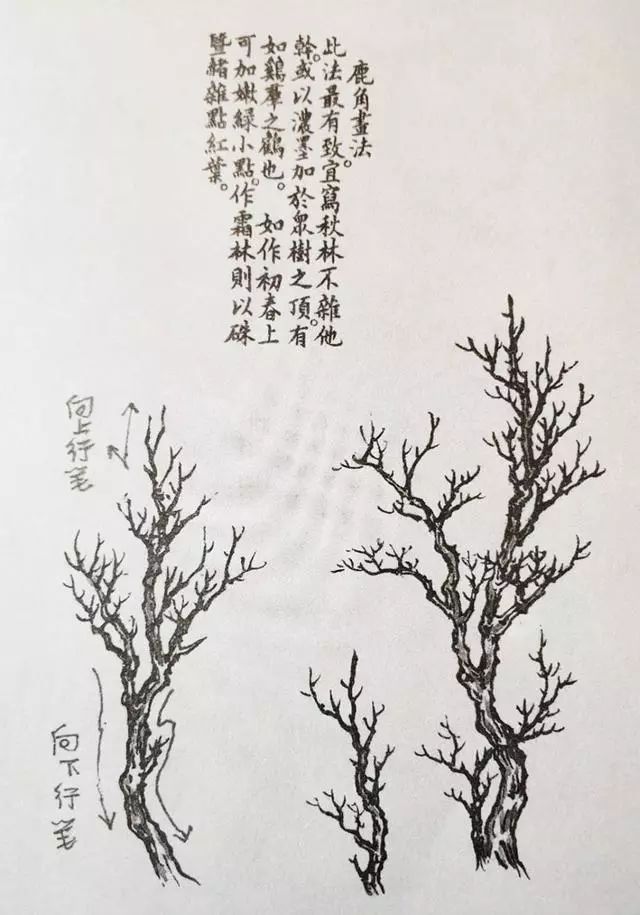 鹿角畫法
此法最有致。宜寫秋林不雜他
幹。或以濃墨加於眾樹之頂。有
如鷄羣之鶴也。如作初春上
可加嫩綠小點。作霜林則以硃
暨赭雜點紅葉。
向上行笔
向下行笔